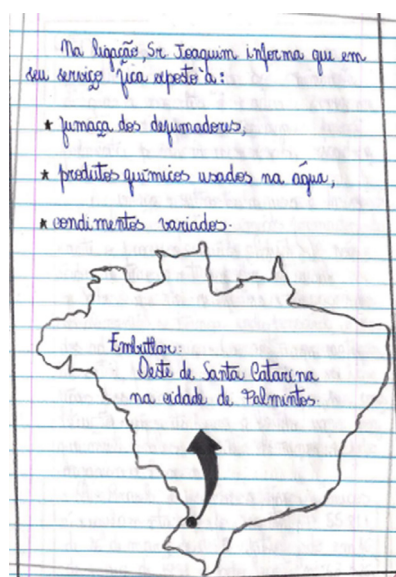 Na ligação, Sr Joaquim informa que em
seu serviço fica exposto à:
* fumaça dos defumadores,
* produtos químicos usados na água,
* condimentos variados.
Embutlar:
Oeste de Santa Catarina
na cidade de Palmintos.